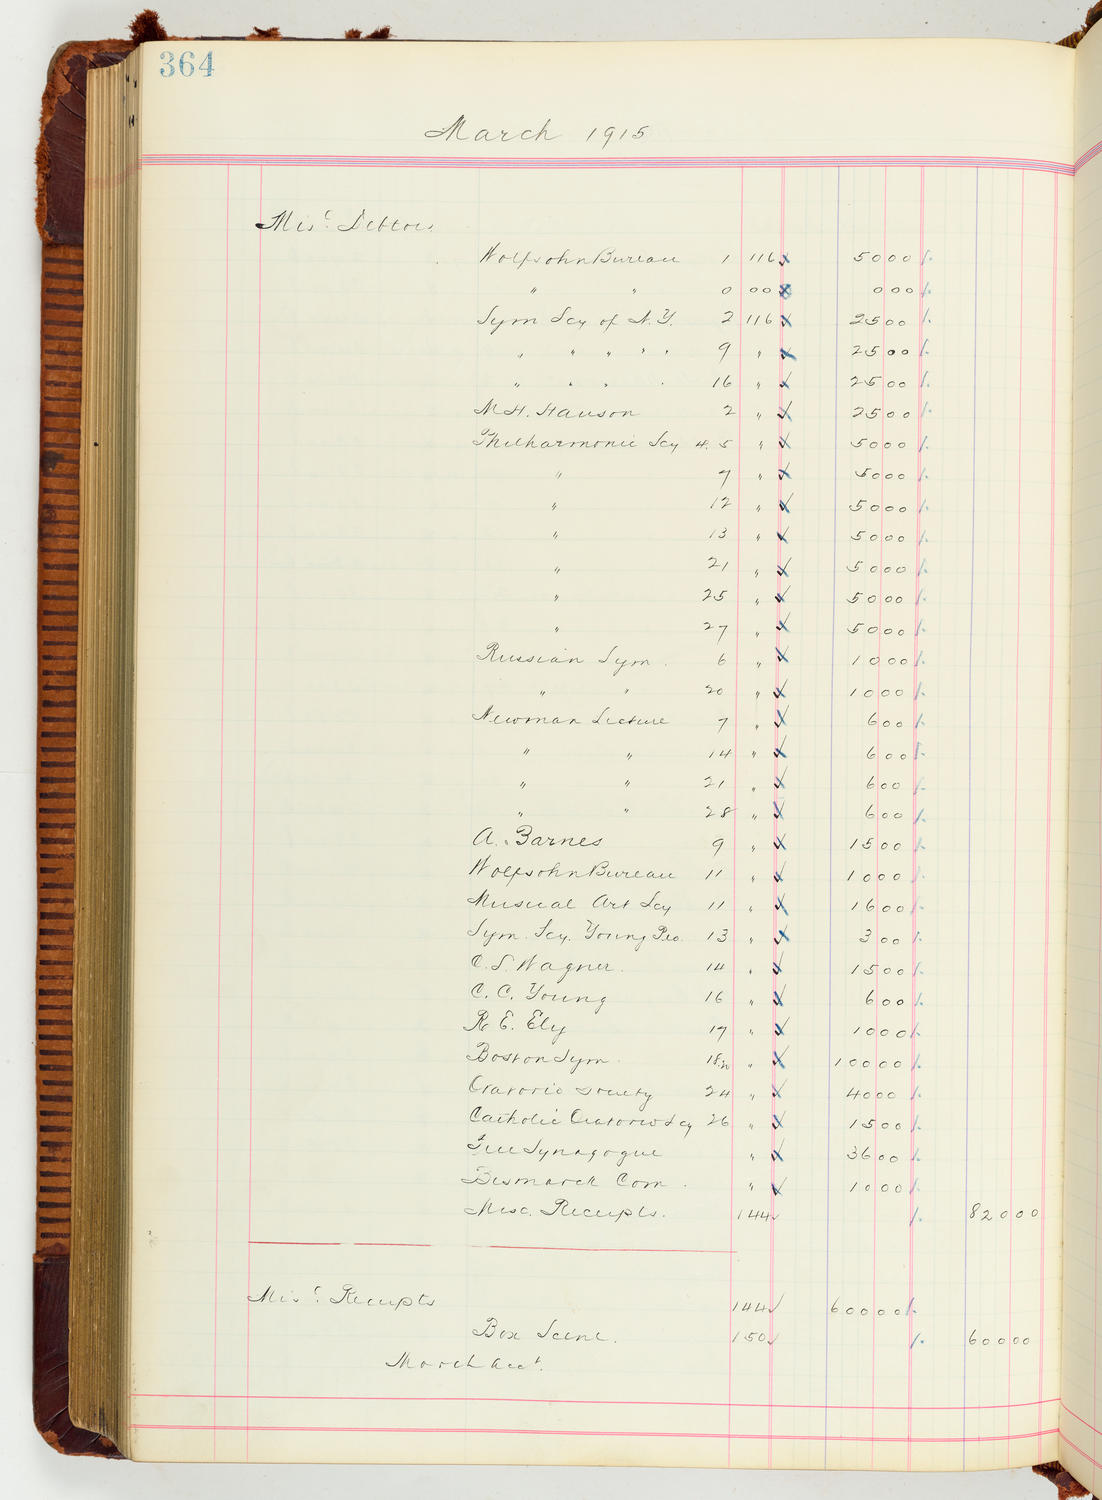 364
March 1915
Misc. Debtors
Wolfsohn Bureau 1 116 5000
" " 0 00 000
Sym Scy of N.Y. 2 116 2500
" " " " " 9 " 2500
" " " " 16 " 2500
M.H. Hanson 2 " 2500
Philharmonic Scy 4.5 " 5000
" 7 " 5000
" 12 " 5000
" 13 " 5000
" 21 " 5000
" 25 " 5000
" 27 " 5000
Russian Sym. 6 " 1000
" " 20 " 1000
Newman Lecture 7 " 600
" " 14 " 600
" " 21 " 600
" " 28 " 600
A. Barnes 9 " 1500
Wolfsohn Bureau 11 " 1000
Musical Art Scy 11 " 1600
Sym. Scy. Young Peo. 13 " 300
C. S. Wagner. 14 " 1500
C. C. Young 16 " 600
R. E. Ely 17 " 1000
Boston Sym. 18.20 " 10000
Oratorio Society 24 " 4000
Catholic Oratorio Scy 26 " 1500
Free Synagogue " 3600
Bismarck Com. " 1000
Misc. Receipts. 144 82000
Misc. Receipts 144 60000
Box Scene. 150 60000
March acct.